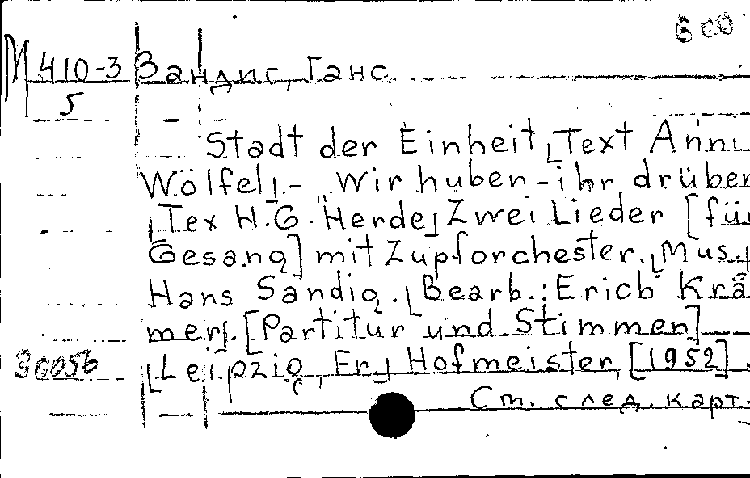 600
М 410-3 Зандиг, Ганс
5
Stadt der Einheit [Text Anni
Wölfel]. - Wir huben-ihr drüben
[Tex H.G. Herde] Zwei Lieder [für
Gesang] mit Zupforchester. [Mus.
Hans Sandig. [Bearb.: Erich Krä-
mer]. [Partitur und Stimmen]
36056 [Leipzig, Er.] Hofmeister, [1952]
См. след. карт.